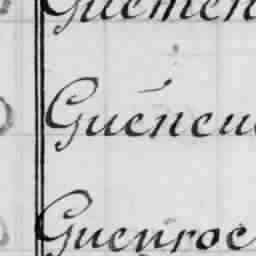 Guémen
Guéneu
Guenroc